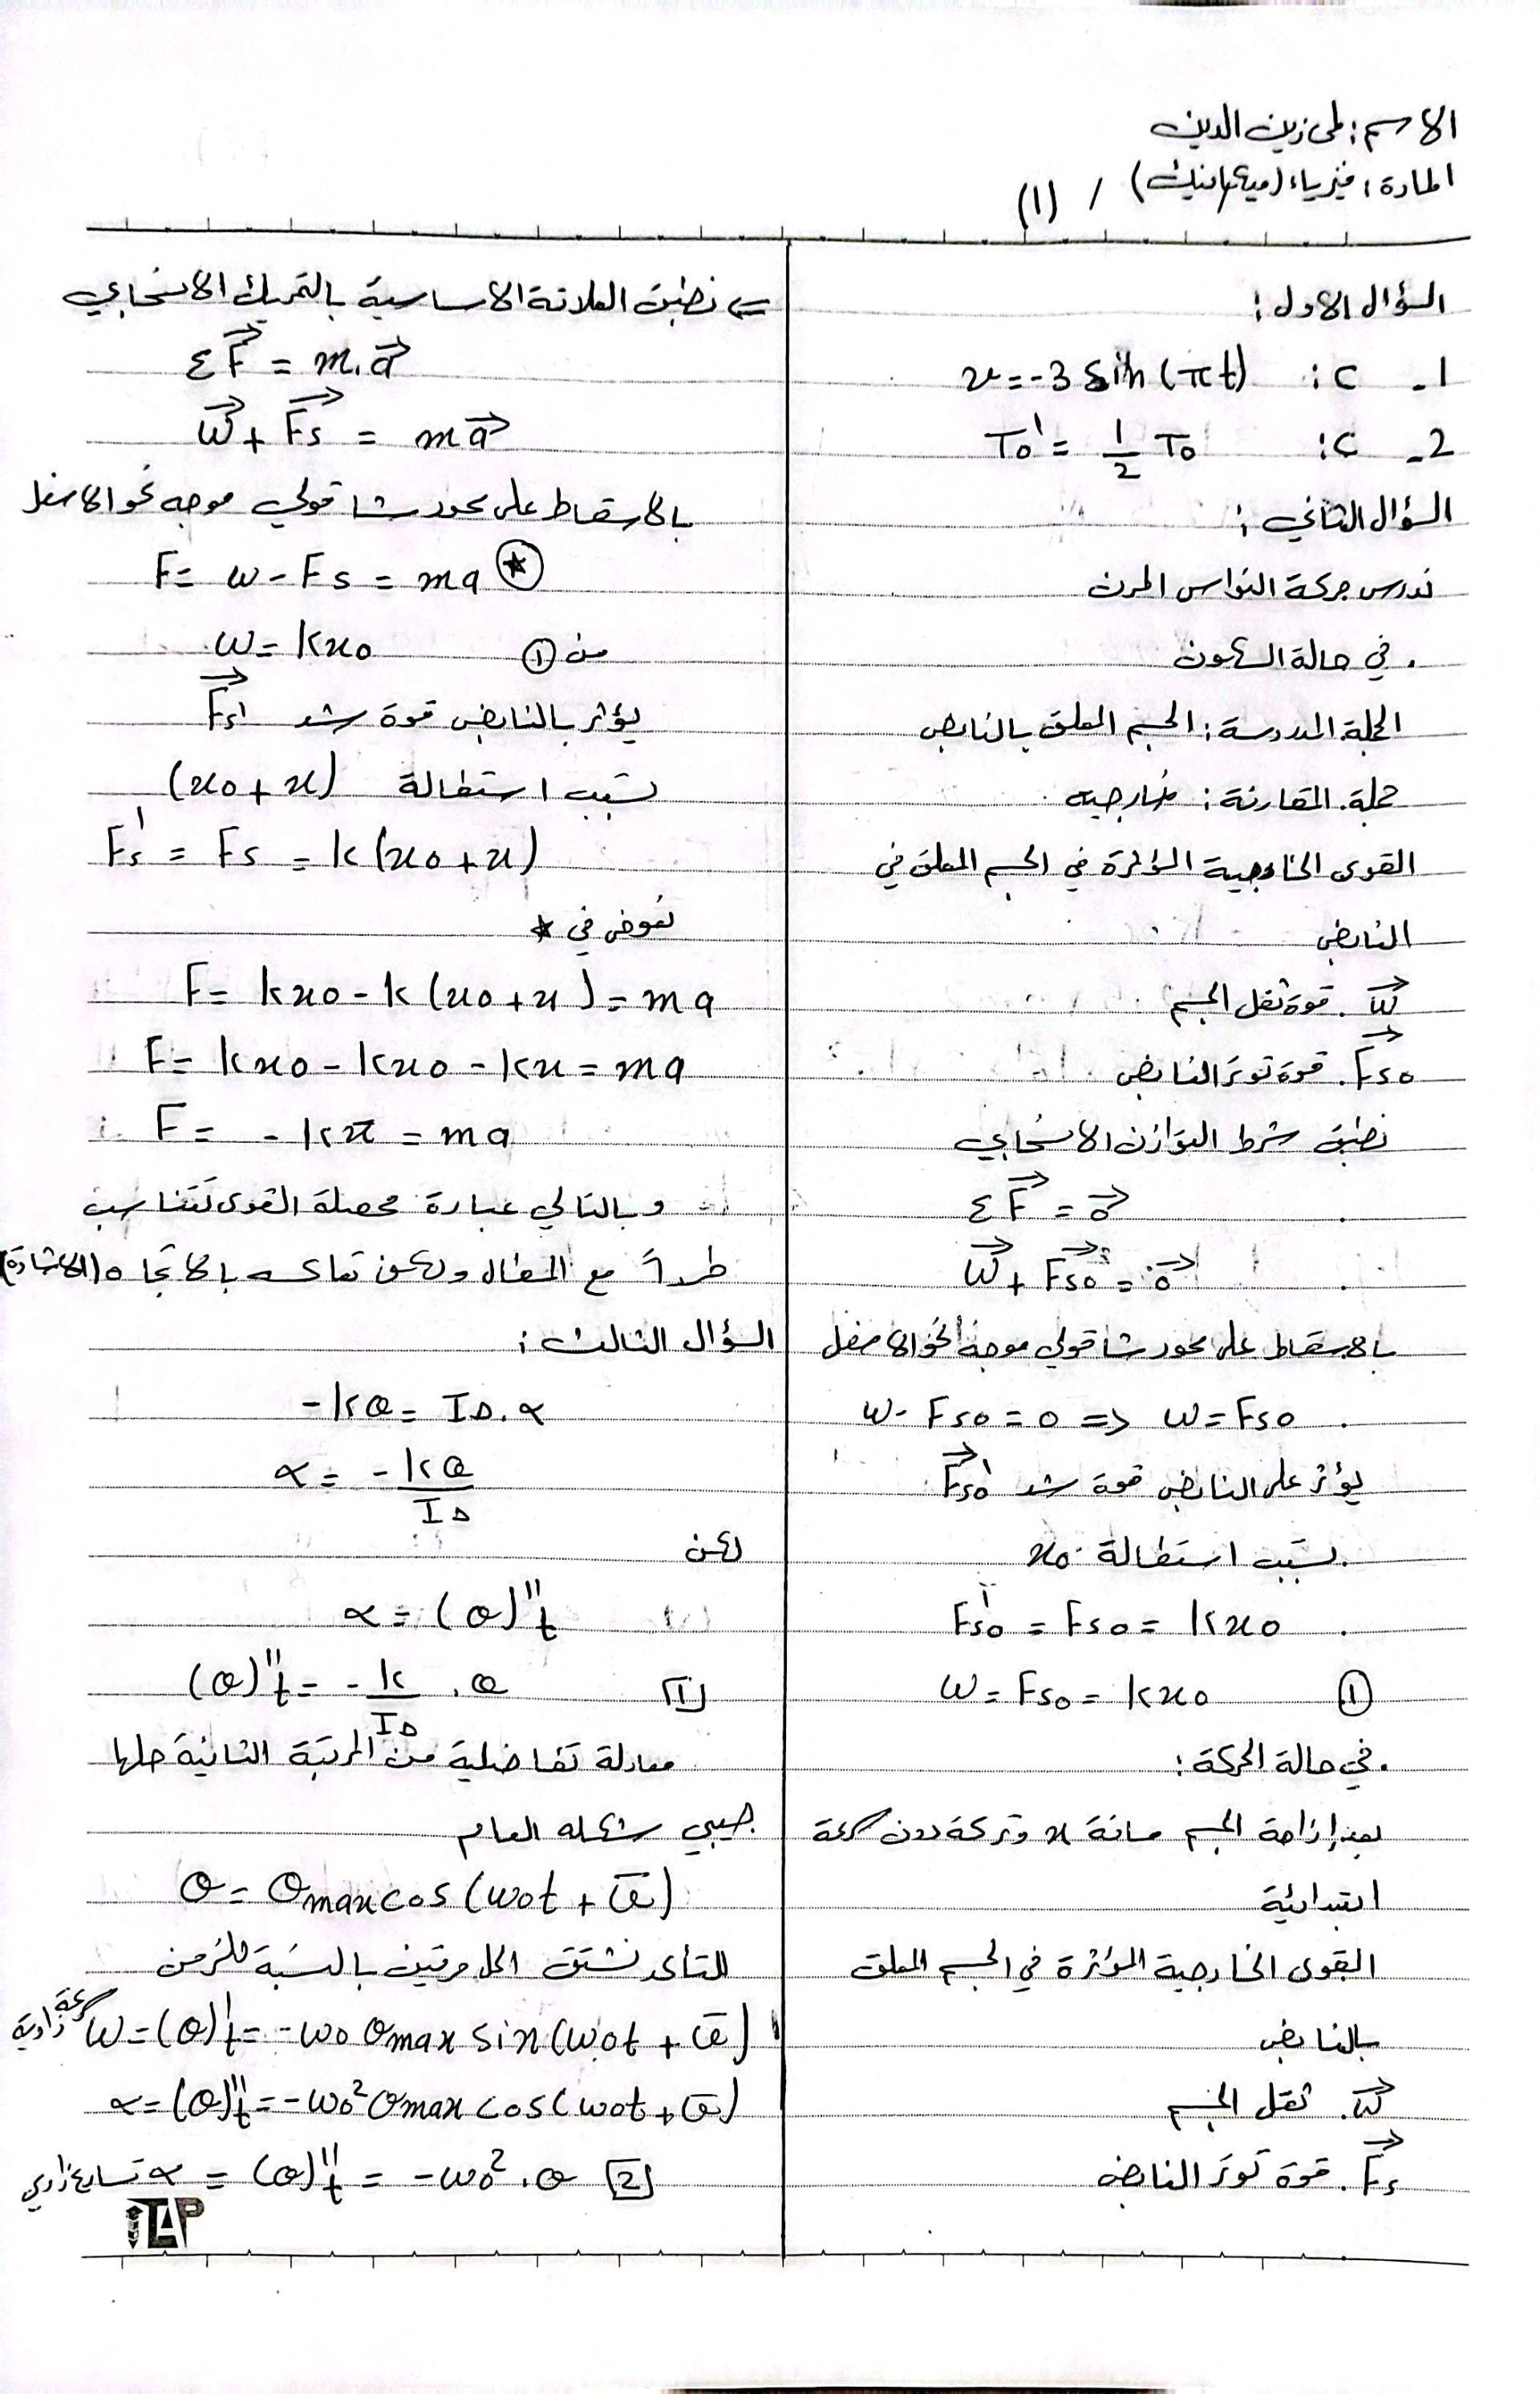 الاسم : لمى زين الدين
المادة : فيزياء (ميكانيك) / (1)
السؤال الاول :
1 - c : v = -3 sin (πt)
2 - c : T₀' = 1/2 T₀
السؤال الثاني :
ندرس حركة النواس المرن
. في حالة السكون
الجملة المدروسة : الجسم المعلق بالنابض
جملة المقارنة : خارجية
القوى الخارجية المؤثرة في الجسم المعلق في
النابض
W⃗ . قوة ثقل الجسم
F⃗s₀ . قوة توتر النابض
نطبق شرط التوازن الانسحابي
Σ F⃗ = 0⃗
W⃗ + F⃗s₀ = 0⃗
بالاسقاط على محور شاقولي موجه نحو الاسفل
w - Fs₀ = 0 => w = Fs₀
يؤثر على النابض قوة شد F⃗s₀'
تسبب استطالة x₀
Fs₀' = Fs₀ = k x₀
① w = Fs₀ = k x₀
. في حالة الحركة :
بعد إزاحة الجسم مسافة x وتركه دون سرعة
ابتدائية
القوى الخارجية المؤثرة في الجسم المعلق
بالنابض
W⃗ . ثقل الجسم
F⃗s . قوة توتر النابض
<= نطبق العلاقة الاساسية بالتحريك الانسحابي
Σ F⃗ = m . a⃗
W⃗ + F⃗s = m a⃗
بالاسقاط على محور شاقولي موجه نحو الاسفل
F = w - Fs = ma ★
من ① w = k x₀
يؤثر بالنابض قوة شد F⃗s'
تسبب استطالة (x₀ + x)
Fs' = Fs = k (x₀ + x)
نعوض في ★
F = k x₀ - k (x₀ + x) = ma
F = k x₀ - k x₀ - k x = ma
F = - k x̄ = ma
وبالتالي عبارة محصلة القوى تتناسب
طرداً مع المطال ولكن تعاكسه بالاتجاه (الاشارة)
السؤال الثالث :
- k θ = I_Δ . α
α = - k θ / I_Δ
لكن
α = (θ)''t
[1] (θ)''t = - k / I_Δ . θ
معادلة تفاضلية من المرتبة الثانية حلها
جيبي شكله العام
θ = θmax cos (ω₀t + φ̄)
للتأكد نشتق الحل مرتين بالنسبة للزمن
سرعة زاوية ω = (θ)'t = - ω₀ θmax sin (ω₀t + φ̄)
α = (θ)''t = - ω₀² θmax cos (ω₀t + φ̄)
تسارع زاوي α = (θ)''t = - ω₀² . θ [2]
TAP